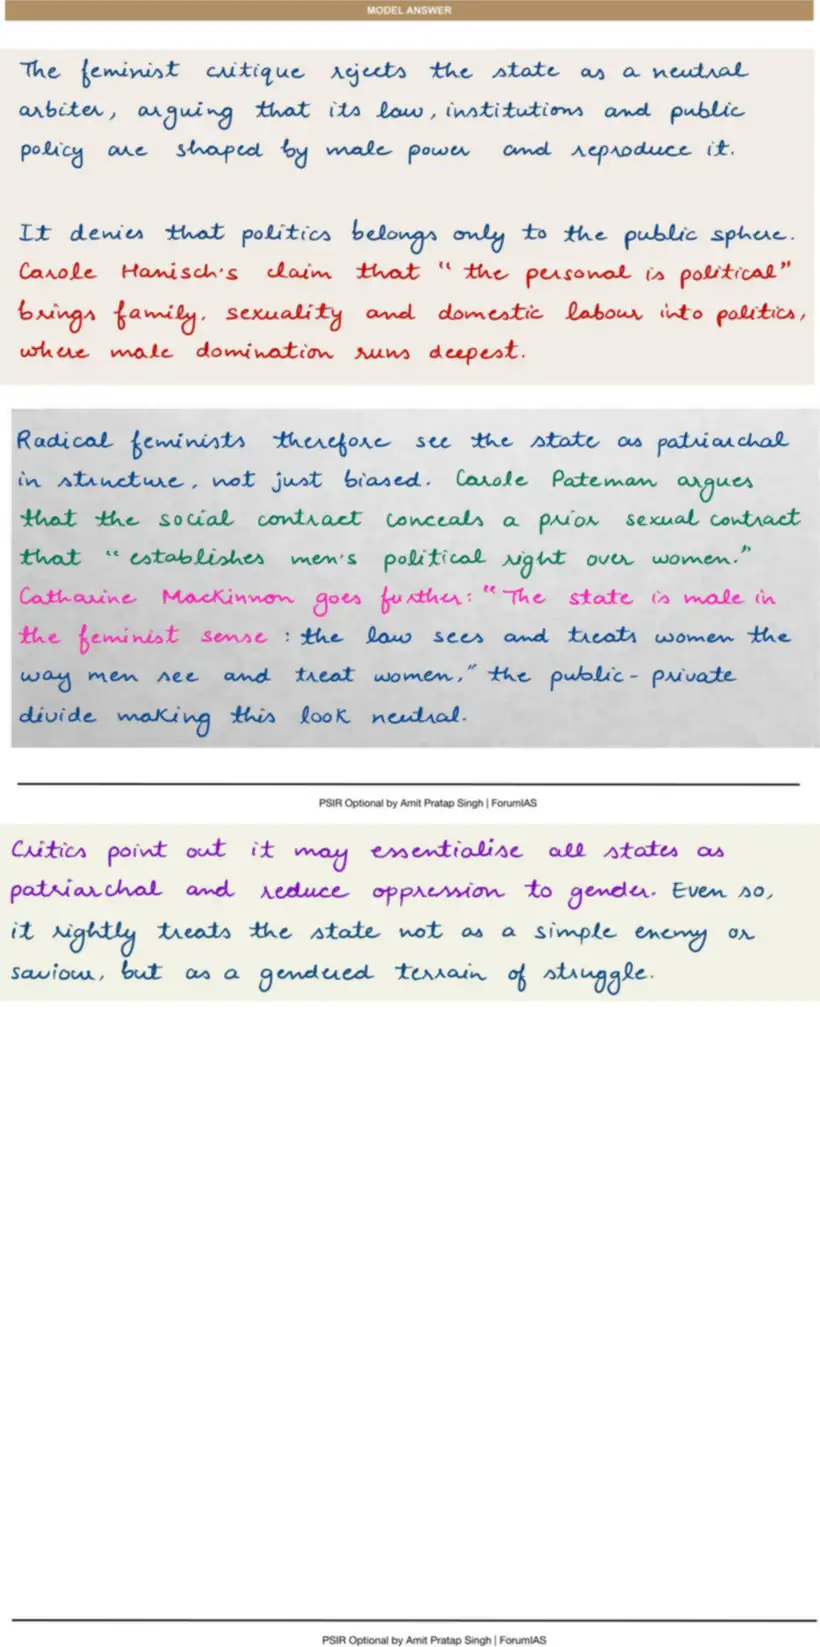 MODEL ANSWER
The feminist critique rejects the state as a neutral
arbiter, arguing that its law, institutions and public
policy are shaped by male power and reproduce it.
It denies that politics belongs only to the public sphere.
Carole Hanisch's claim that "the personal is political"
brings family, sexuality and domestic labour into politics,
where male domination runs deepest.
Radical feminists therefore see the state as patriarchal
in structure, not just biased. Carole Pateman argues
that the social contract conceals a prior sexual contract
that "establishes men's political right over women."
Catharine MacKinnon goes further: "The state is male in
the feminist sense : the law sees and treats women the
way men see and treat women," the public-private
divide making this look neutral.
PSIR Optional by Amit Pratap Singh | ForumIAS
Critics point out it may essentialise all states as
patriarchal and reduce oppression to gender. Even so,
it rightly treats the state not as a simple enemy or
saviour, but as a gendered terrain of struggle.
PSIR Optional by Amit Pratap Singh | ForumIAS